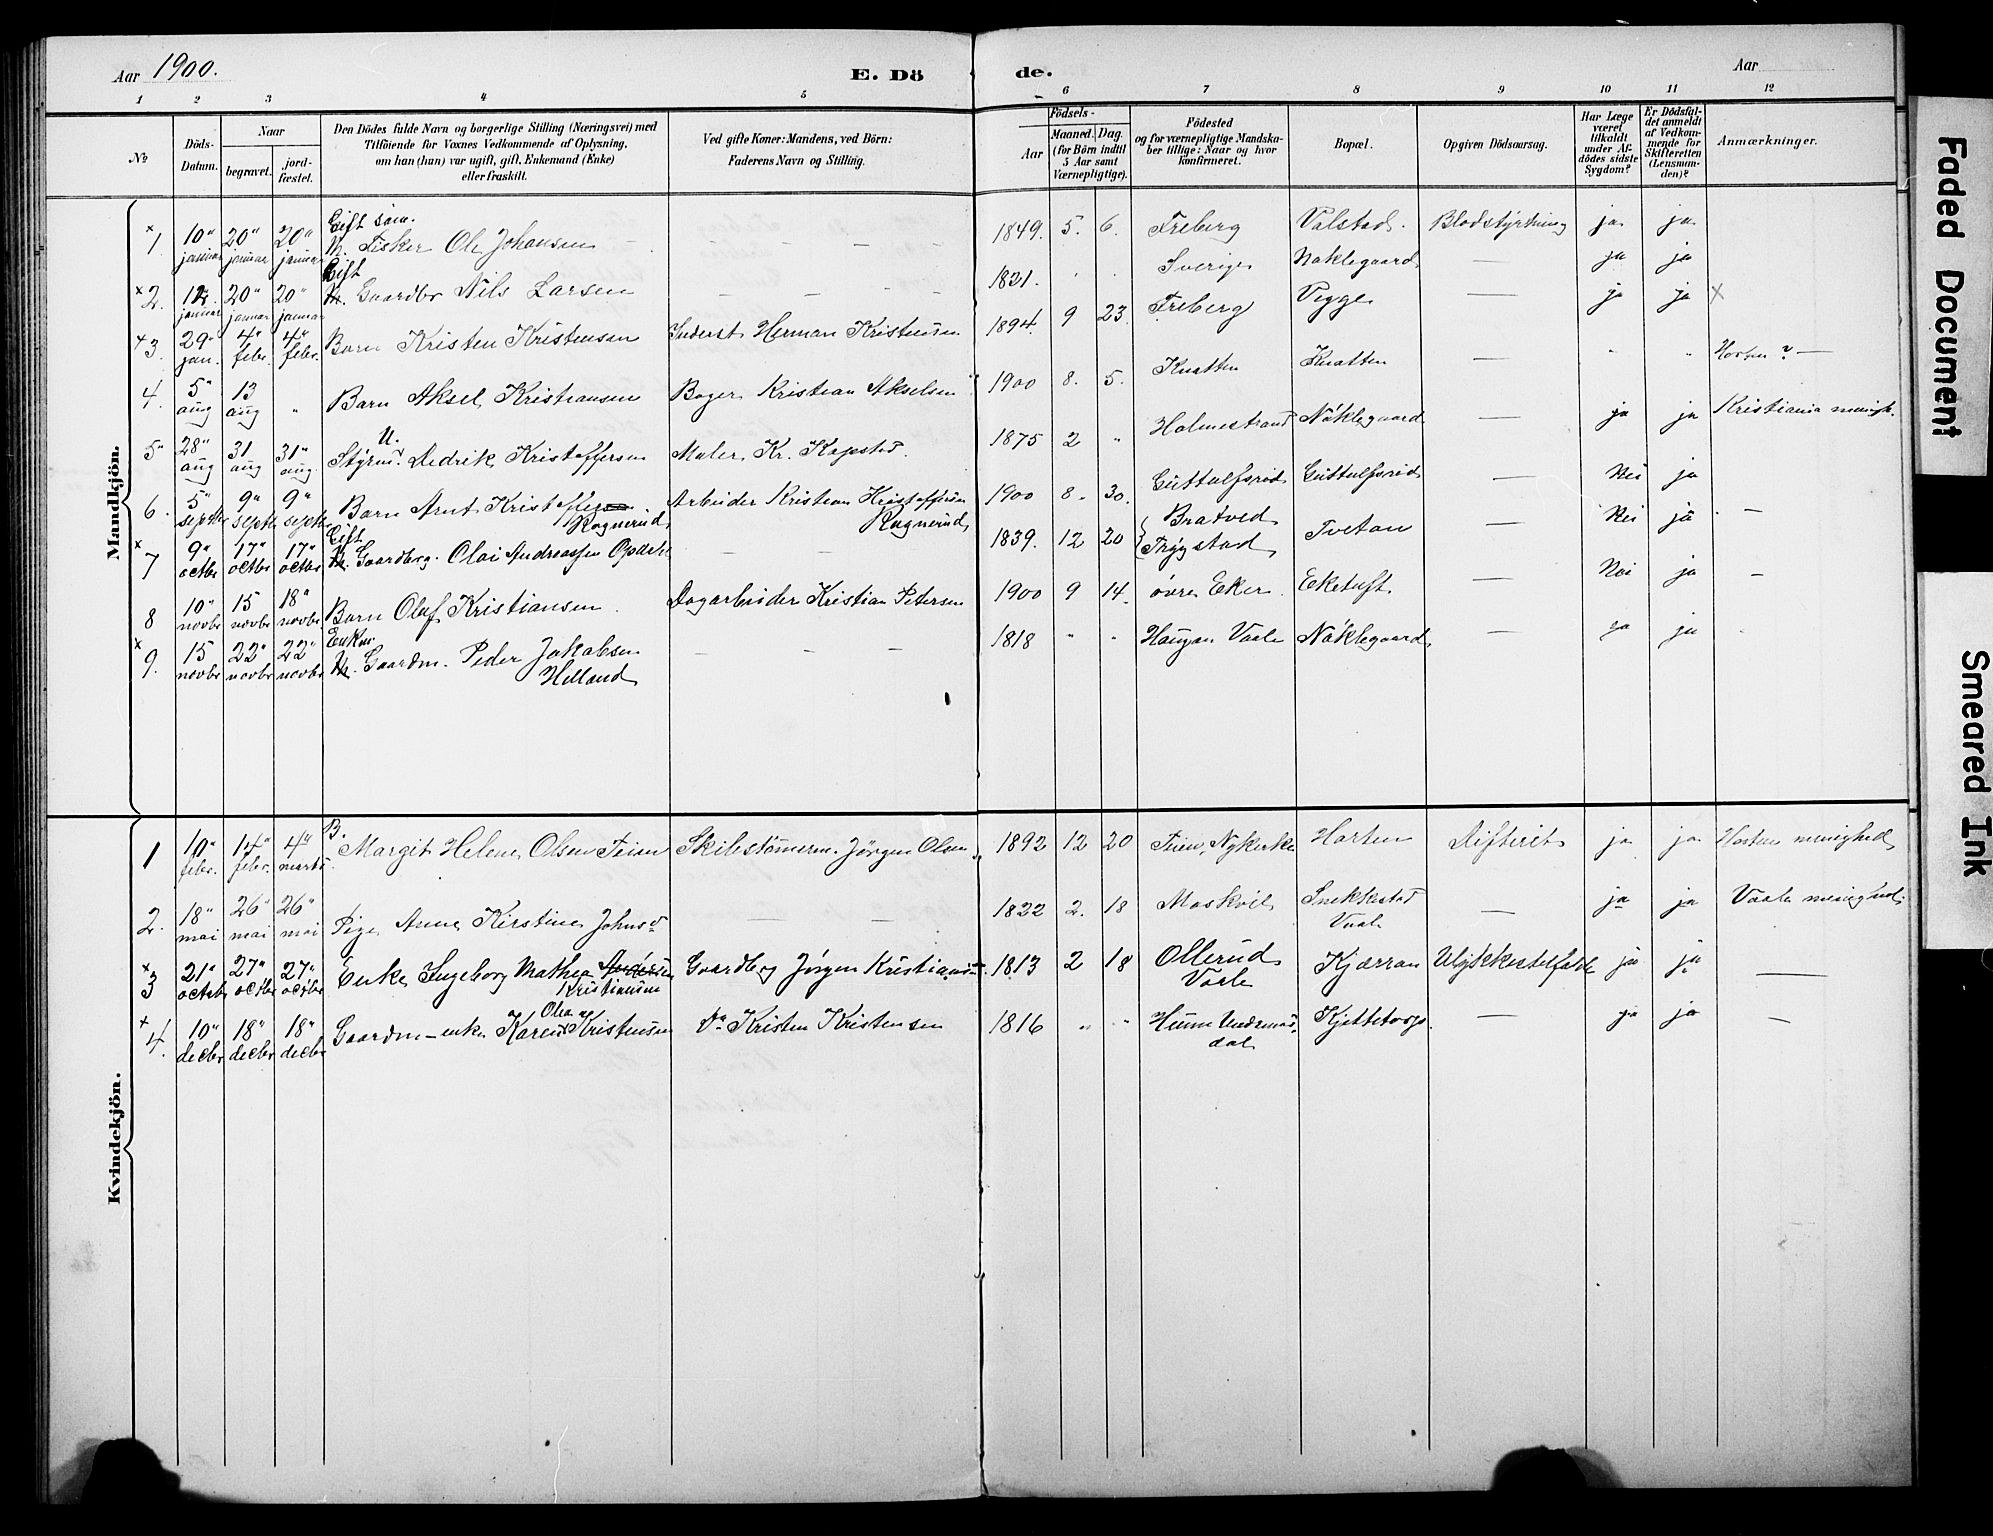 Aar 1900.
E. Dö
de.
Aar
1 2 3 4 5 6 7 8 9 10 11 12
No
Döds-Datum.
Naar
begravet.
jordfæstet.
Den Dödes fulde Navn og borgerlige Stilling (Næringsvei) med
Tilföiende for Voxnes Vedkommende af Oplysning,
om han (hun) var ugift, gift, Enkemand (Enke)
eller fraskilt.
Ved gifte Koner: Mandens, ved Börn:
Faderens Navn og Stilling.
Födsels-
Aar
Maaned. Dag.
(for Börn indtil
5 Aar samt
Værnepligtige).
Födested
og for værnepligtige Mandska-
ber tillige: Naar og hvor
konfirmeret.
Bopæl.
Opgiven Dödsaarsag.
Har Læge
været
tilkaldt
under Af-
dödes sidste
Sygdom?
Er Dödsfal-
det anmeldt
af Vedkom-
mende for
Skifteretten
(Lensman-
den)?
Anmærkninger.
Mandkjön.
Gift söm.
1. 10" januar 20" januar 20" januar M. Fisker Ole Johansen — — — 1849. 5. 6. Freberg Valstad. Blodstyrtning ja ja
Gift
2. 12 januar 20" januar 20" januar Gaardbr Nils Larsen — — — 1821. Sverige Naklegaard — ja ja
3. 29" jan. 4" febr. 4" febr. Barn Kristen Kristensen Inderst Herman Kristensen 1894. 9 23 Freberg Vegge — ja ja x
4. 5" aug 13 aug " Barn Aksel Kristiansen Bager Kristian Akselsen 1900 8. 5. Knatten Knatten — " " Horten? —
U.
5" 28" aug 31 aug 31" aug. Styrm. Dedrik Kristoffersen Maler Kr. Kopstad. 1875 2 " Holmestrand Nöklegaard — ja ja Kristiania menigh.
6. 5" septbr 9" septbr 9" septbr Barn Arnt Kristoffer Rognerud Arbeider Kristian Kristoffersen Rognerud 1900 8. 30. Guttulfsrød Guttulfsrød — Nei ja
Gift
7 9" octbr 17" octbr 17" octbr Gaardbrg. Olai Andreassen — — 1839. 12 20 Bratved Trygstad Tveтan — Nei ja —
8 10" novbr 15 novbr 18" novbr Barn Oluf Kristiansen. Dagarbeider Kristian Petersen 1900 9 14. övre Eker. Eketuft. — Nei ja —
Enkm
9. 15 novbr 22" novbr 22" novbr Gaardm. Peder Jakobsen Helland — — — 1818 " " Haugan Vaale Nöklegaard — ja ja
Kvindekjön.
B.
1 10" febr. 14" febr. 4" marts. Margit Helene Olsen Feien Skibstömerm. Jörgen Olsen 1892 12 20 Feien, Nykirke Horten Difterit ja ja Horten menighed
2. 18" mai 26" mai 26" mai Pige Anne Kirstine Johnsd — — 1822 2. 18 Moskvil Snekkestad Vaale — ja ja Vaale menighed.
3 21" octbr 27" octbr 27" octbr Enke Ingeborg Mathea Andersen Kristiansen Gaardbrg Jörgen Kristiansen 1813 2 18 Ollerud Vaale Kjærran Ulykkestilfælde ja ja —
Olea
4. 10" decbr 18" decbr 18" decbr Gaardm-enke Karen Kristensen Do Kristen Kristensen 1816 " " Hunn Undrumsdal Kjettetorp. — ja ja —
Faded Document
Smeared Ink